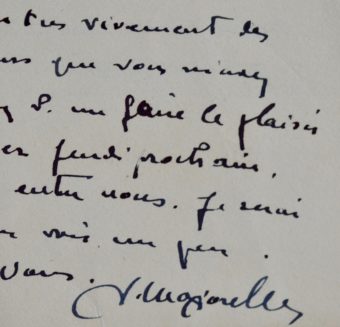 très vivement des
que vous
me faire le plaisir
jeudi prochain.
entre nous. Je serai
vois un peu.
vous.
J. Majorelle